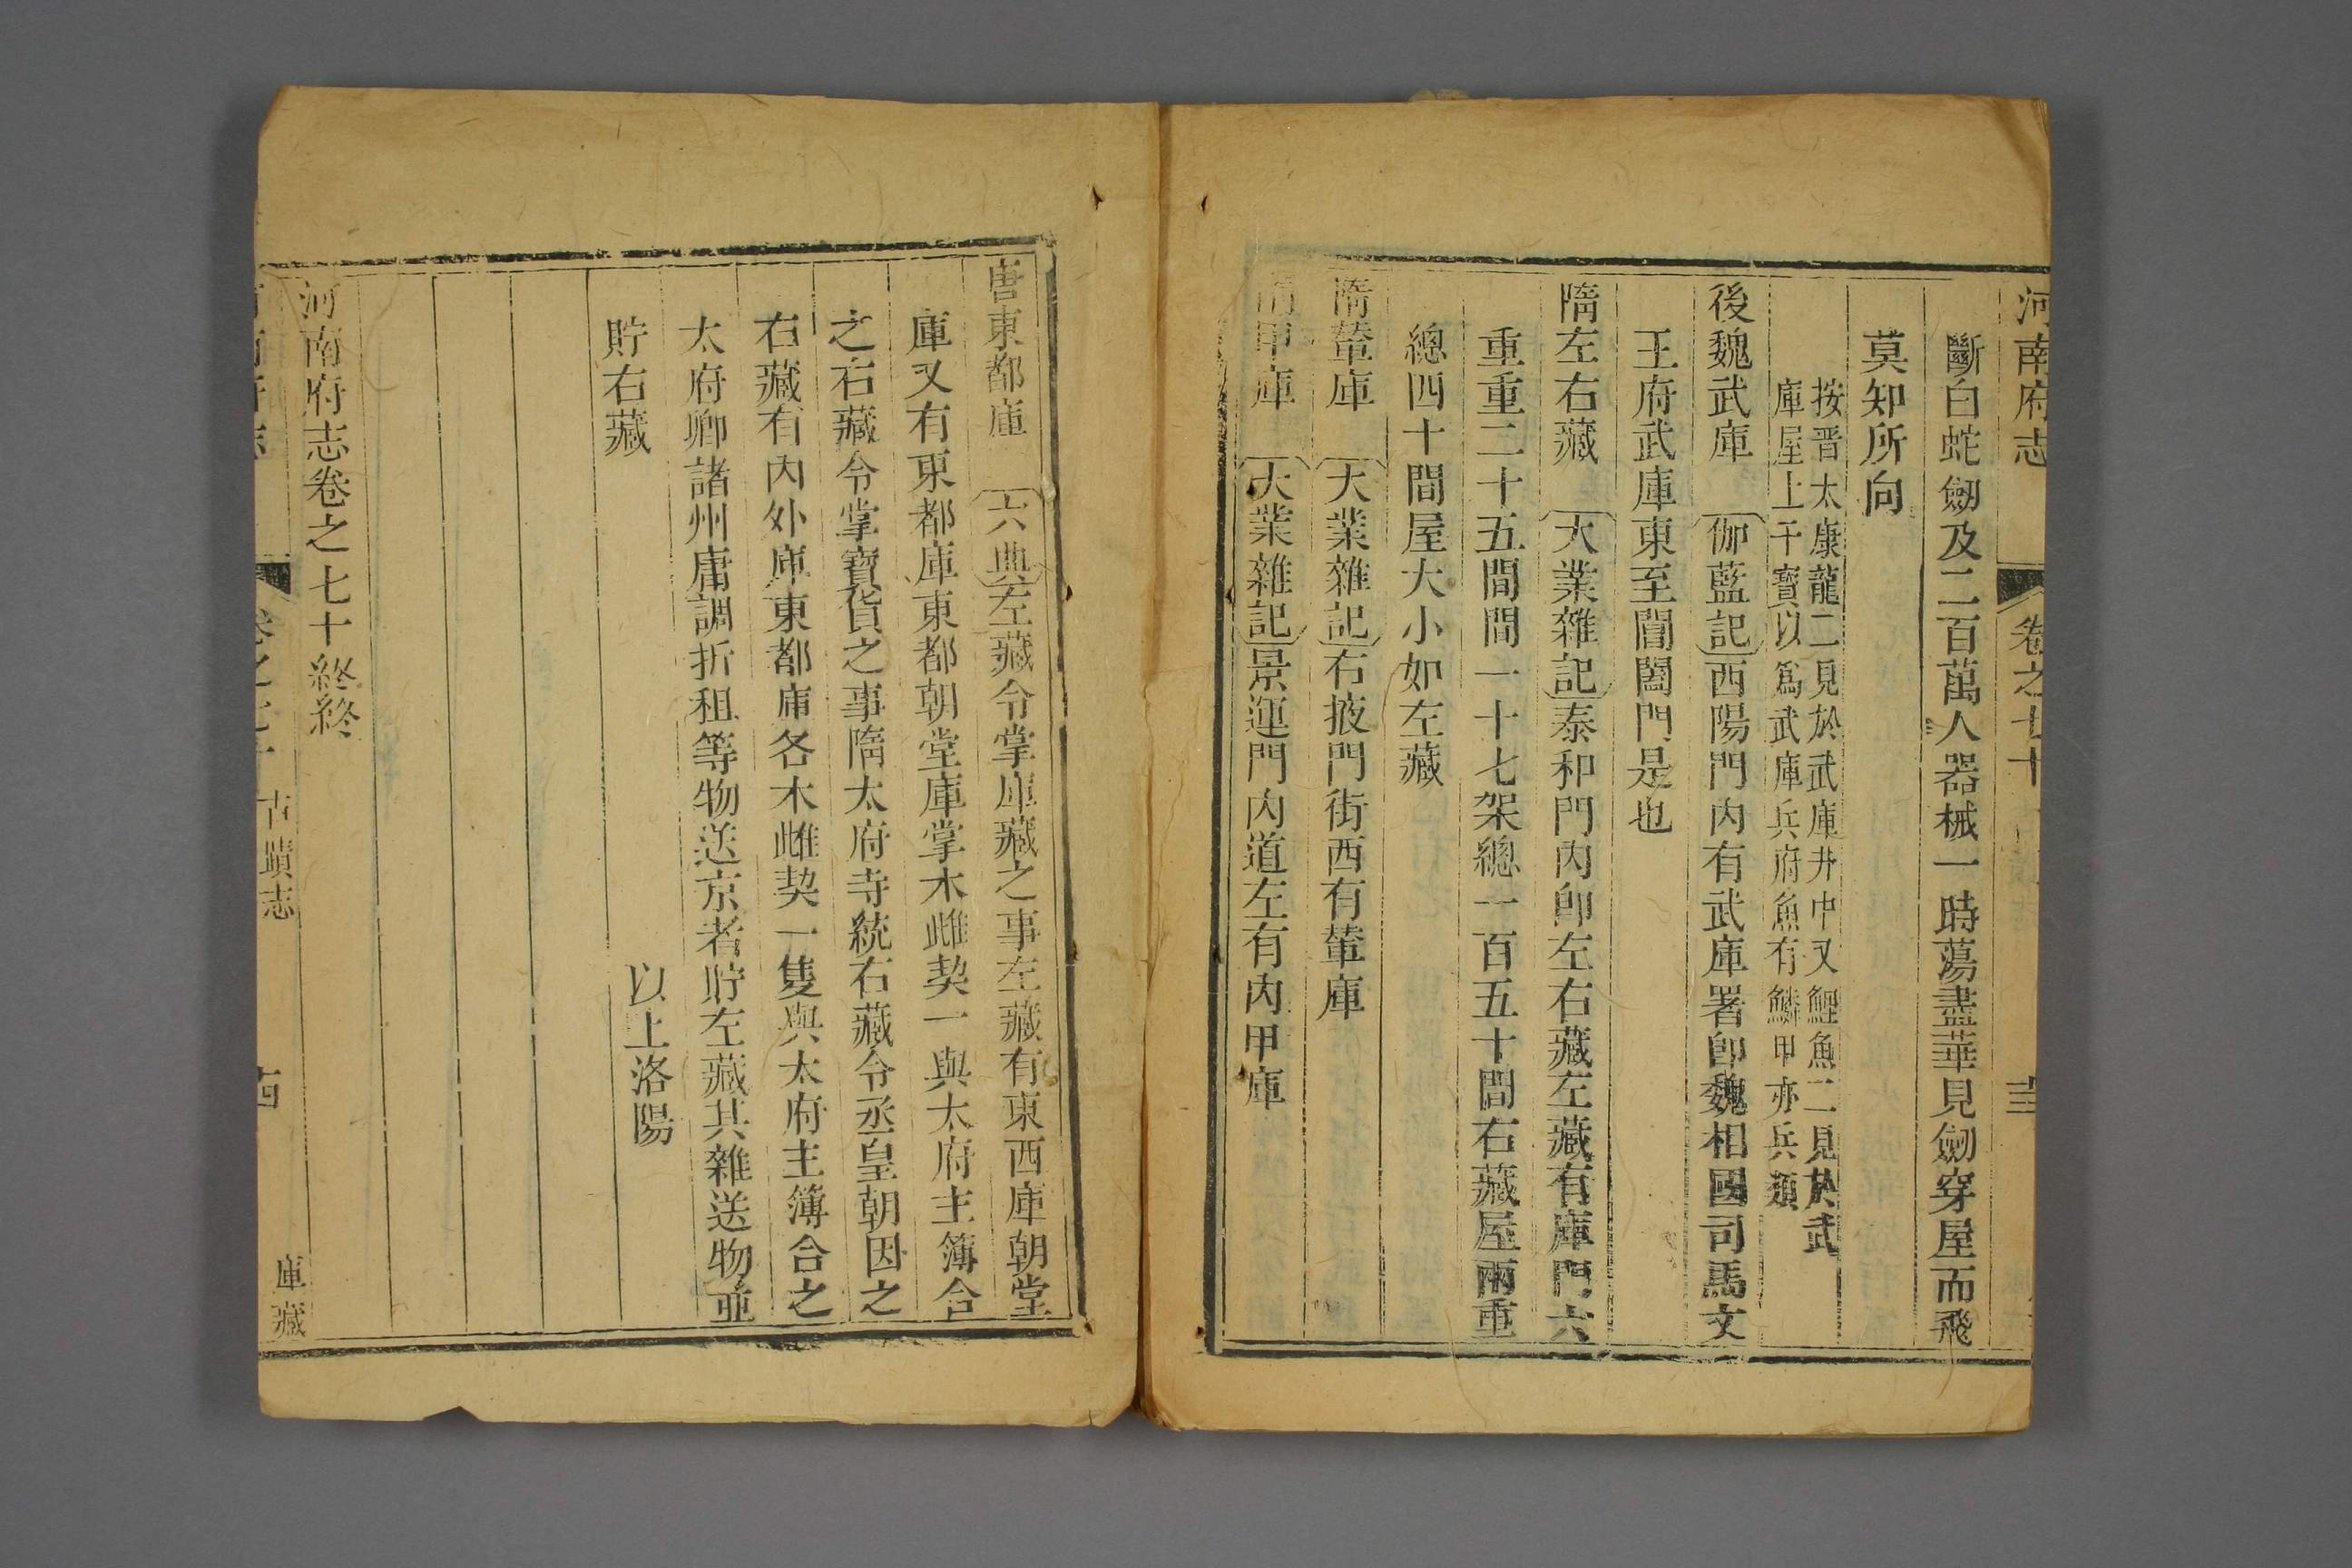 河南府志
卷之七十
斷白蛇劒及二百萬人器械一時蕩盡華見劒穿屋而飛
莫知所向
按晋太康龍二見於武庫井中又鯉魚二見於武
庫屋上干寳以爲武庫兵府魚有鱗甲亦兵類
後魏武庫
伽藍記西陽門内有武庫署卽魏相國司馬文
王府武庫東至閶闔門是也
隋左右藏
大業雜記泰和門内卽左右藏左藏有庫門六
重重二十五間間一十七架總一百五十間右藏屋兩重
總四十間屋大小如左藏
隋輂庫
大業雜記右掖門街西有輂庫
甲庫
大業雜記景運門内道左有内甲庫
唐東都庫
六典左藏令掌庫藏之事左藏有東西庫朝堂
庫又有東都庫東都朝堂庫掌木雌契一與太府主簿合
之右藏令掌寶貨之事隋太府寺統右藏令丞皇朝因之
右藏有内外庫東都庫各木雌契一隻與太府主簿合之
太府卿諸州庸調折租等物送京者貯左藏其雜送物並
貯右藏
以上洛陽
河南府志卷之七十終終
古蹟志
庫藏